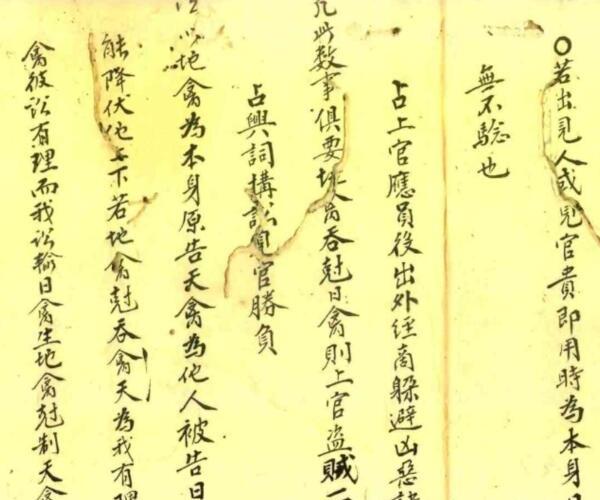 若出見人或見官貴即用時為本身日
無不騐也
占上官應員役出外經商躲避凶惡
凡此數事俱要地禽吞尅日禽則上官盗賊一
占興詞搆訟見官勝負
以地禽為本身原告天禽為他人被告日
能降伏他七下若地禽尅吞禽天為我有理
禽彼訟有理而我訟輸日禽生地禽尅制天禽